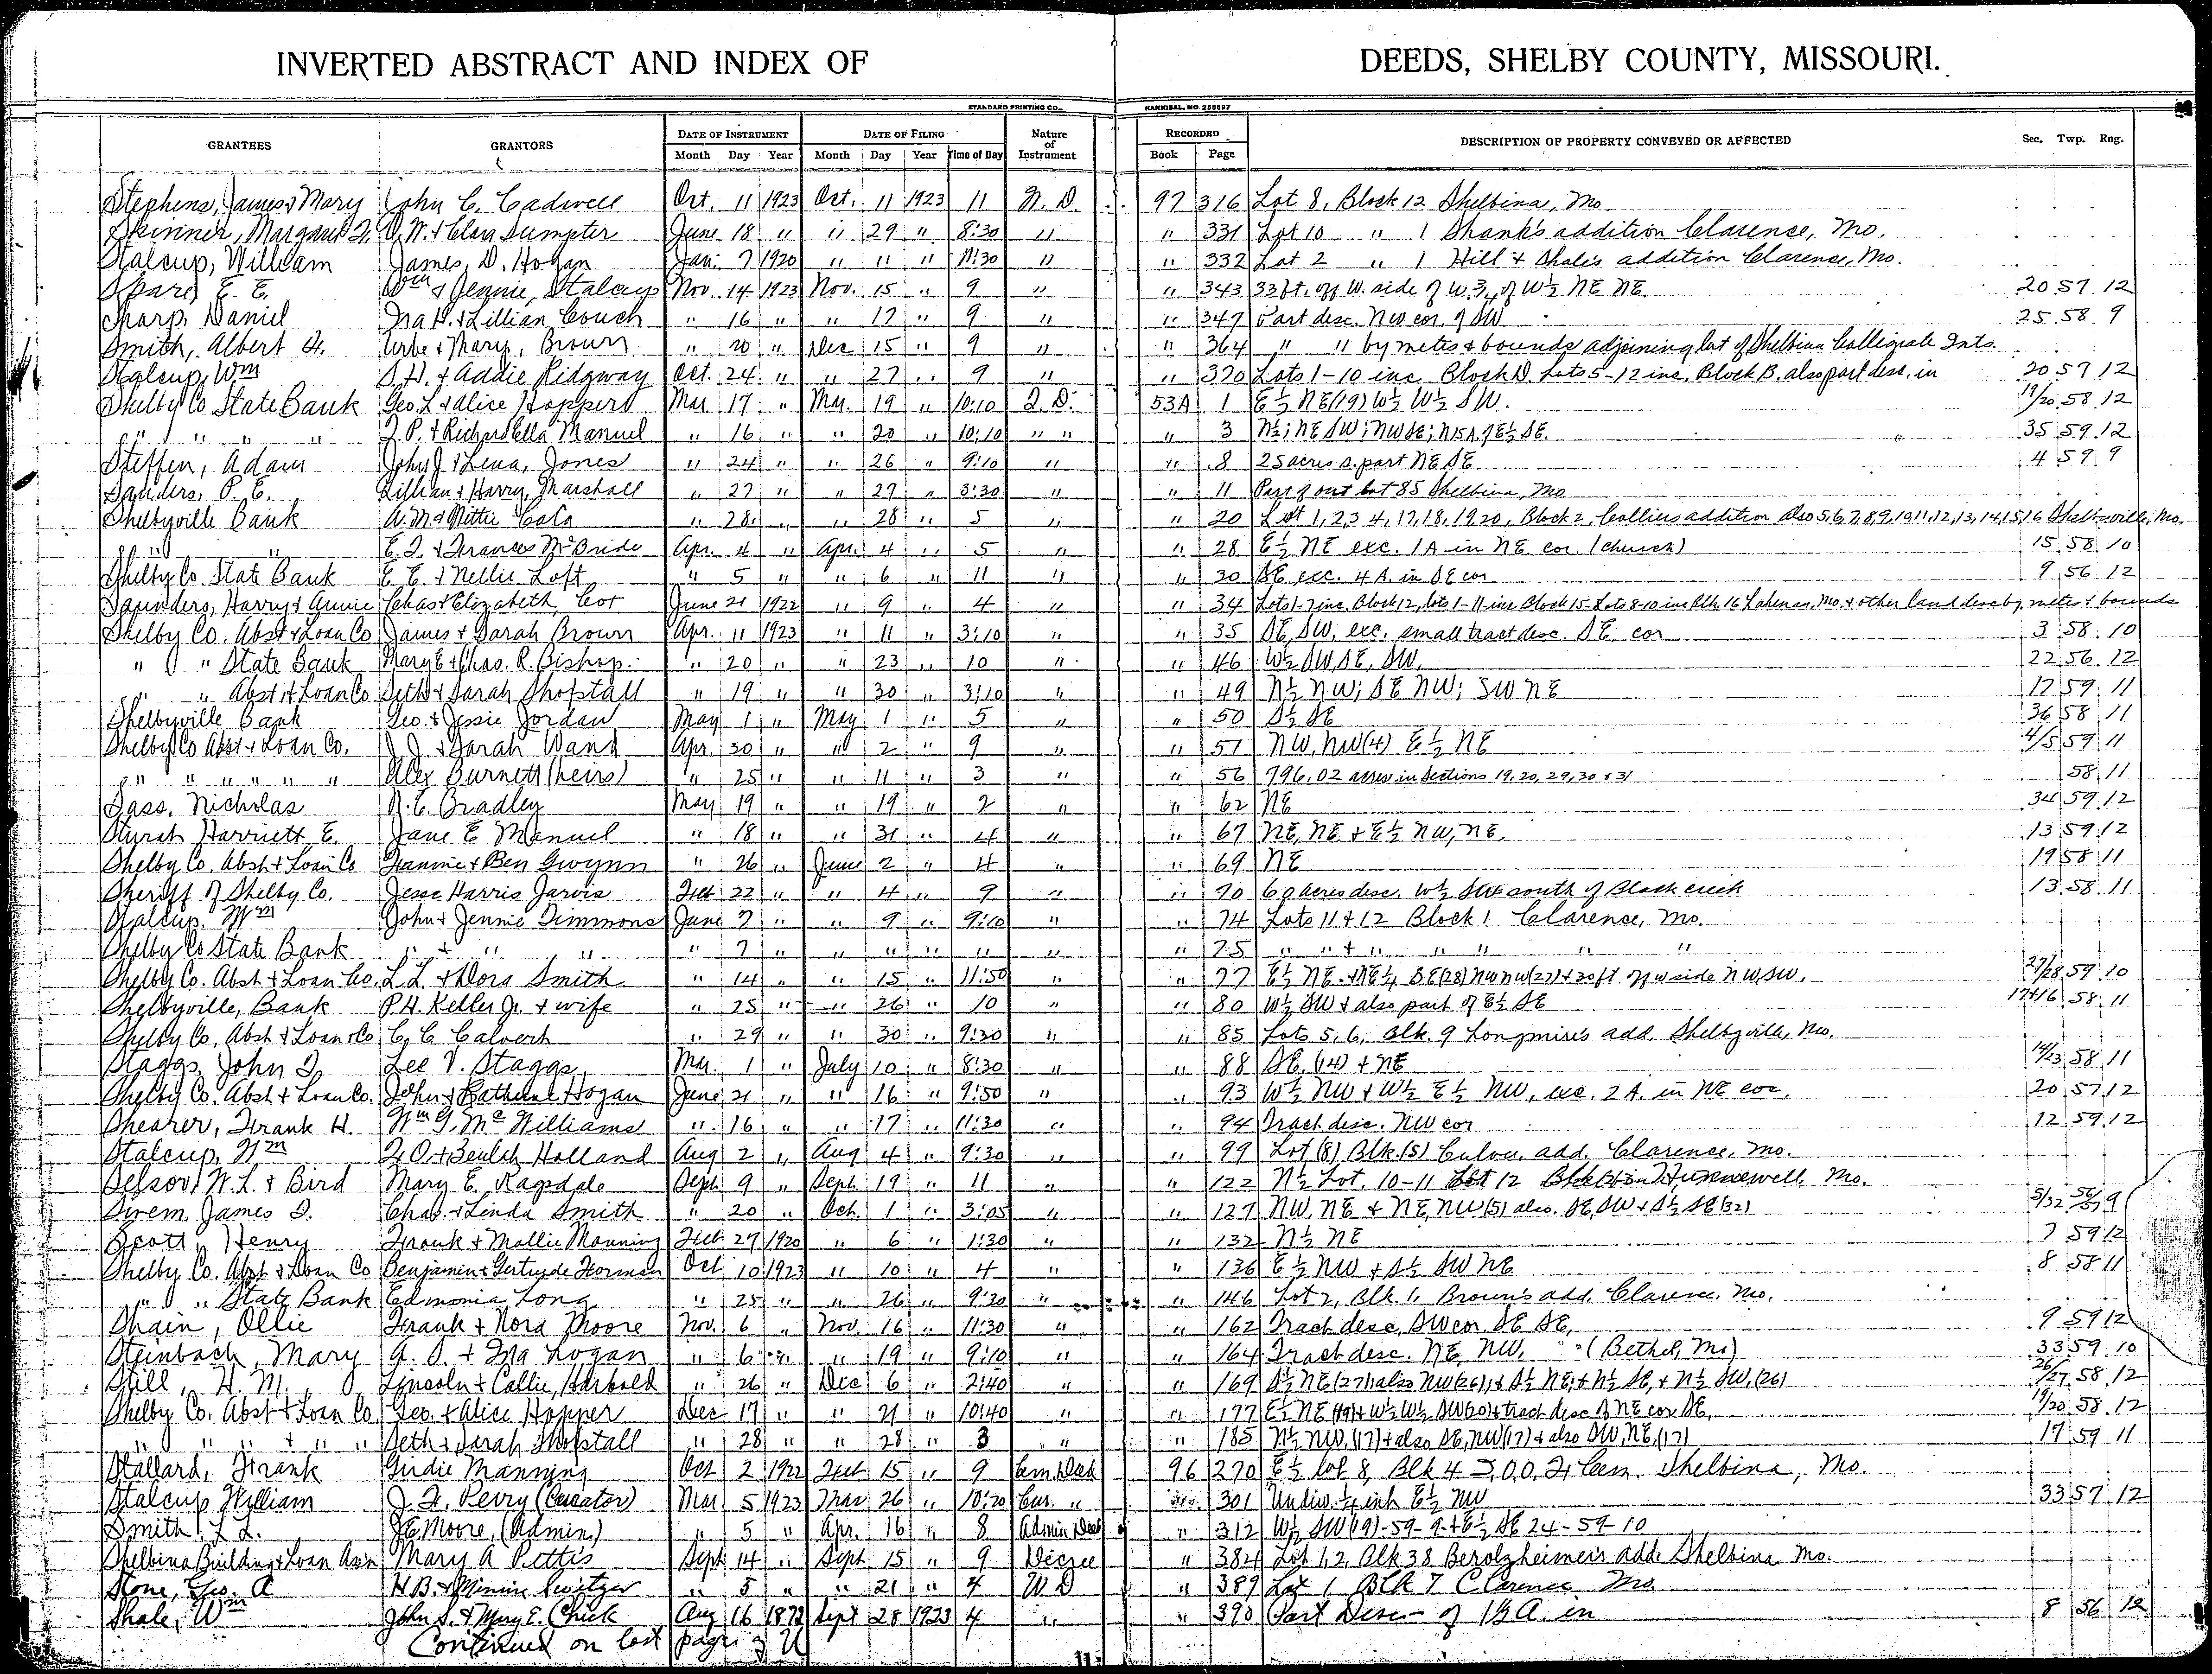 INVERTED ABSTRACT AND INDEX OF DEEDS, SHELBY COUNTY, MISSOURI.
STANDARD PRINTING CO., HANNIBAL, MO. 258697
GRANTEES GRANTORS DATE OF INSTRUMENT DATE OF FILING Nature of Instrument RECORDED DESCRIPTION OF PROPERTY CONVEYED OR AFFECTED Sec. Twp. Rng.
Month Day Year Month Day Year Time of Day Book Page
Stephens, James & Mary John C. Cadwell Oct. 11 1923 Oct. 11 1923 11 W. D. 97 316 Lot 8, Block 12 Shelbina, Mo
Skinner, Margaret J. O. W. & Clara Sumpter June 18 " " 29 " 8:30 " " 331 Lot 10 " 1 Shank's addition Clarence, Mo.
Stalcup, William James D. Hogan Jan. 7 1920 " 11 " 11:30 " " 332 Lot 2 " 1 Hill & Shale's addition Clarence, Mo.
Spares E. E. Wm & Jennie, Stalcup Nov. 14 1923 Nov. 15 " 9 " " 343 33 ft. off W. side of W 3/4 of W½ NE NE. 20 57 12
Sharp, Daniel Ira H. & Lillian Couch " 16 " " 17 " 9 " " 347 Part desc. NW cor. of SW 25 58 9
Smith, Albert H. Urbe & Mary, Brown " 20 " Dec 15 " 9 " " 364 " " by metes & bounds adjoining lot of Shelbina Colligiate Ints.
Stalcup, Wm S. H. & Addie Ridgway Oct. 24 " " 27 " 9 " " 370 Lots 1-10 inc. Block D. Lots 5-12 inc. Block B. also part desc. in 20 57 12
Shelby Co. State Bank Geo. L. & Alice Hoppers Mar 17 " Mar. 19 " 10:10 T. D. 53A 1 E½ NE (19) W½ W½ SW. 19/20 58 12
" " " " J. P. & Richardella Manuel " 16 " " 20 " 10:10 " " " 3 N½; NE SW; NW SE; N 15 A. of E½ SE. 35 59 12
Steffen, Adam John J. & Lena, Jones " 24 " " 26 " 9:10 " " 8 25 acres s. part NE SE 4 59 9
Saunders, P. E. Lillian & Harry, Marshall " 27 " " 27 " 3:30 " " 11 Part of out lot 85 Shelbina, Mo
Shelbyville Bank A. M. & Mittie " 28 " " 28 " 5 " " 20 Lot 1,2,3 4, 17,18, 19,20, Block 2, Colliers addition also 5,6,7,8,9,10,11,12,13,14,15,16 Shelbyville, Mo.
" " E. J. & Frances McBride Apr. 4 " Apr. 4 " 5 " " 28 E½ NE exc. 1A in NE cor. (church) 15 58 10
Shelby Co. State Bank E. E. & Nellie Loft " 5 " " 6 " 11 " " 30 SE exc. 4 A. in SE cor 9 56 12
Saunders, Harry & Annie Chas & Elizabeth, Cox June 21 1922 " 9 " 4 " " 34 Lots 1-7 inc. Block 12, lots 1-11 inc Block 15 Lots 8-10 inc Blk 16 Lakenan, Mo. & other land desc by metes & bounds
Shelby Co. Abst & Loan Co James & Sarah Brown Apr. 11 1923 " 11 " 3:10 " " 35 SE, SW, exc. small tract desc. SE, cor 3 58 10
" " State Bank Mary E & Chas. R. Bishop " 20 " " 23 " 10 " " 46 W½ SW, SE, SW, 22 56 12
" " Abst & Loan Co Seth & Sarah Shofstall " 19 " " 30 " 3:10 " " 49 N½ NW; SE NW; SW NE 17 59 11
Shelbyville Bank Geo. & Jessie Jordan May 1 " May 1 " 5 " " 50 S½ SE 36 58 11
Shelby Co Abst & Loan Co. J. J. & Sarah Wand Apr. 30 " " 2 " 9 " " 51 NW, NW (4) E½ NE 4/5 59 11
" " " " " Alex Burnett (heirs) " 25 " " 11 " 3 " " 56 796.02 acres in Sections 19, 20, 29, 30 & 31 58 11
Sass, Nicholas N. E. Bradley May 19 " " 19 " 2 " " 62 NE 34 59 12
Harriett E. Jane E Manuel " 18 " " 31 " 4 " " 67 NE, NE & E½ NW, NE, 13 59 12
Shelby Co. Abst & Loan Co Fannie & Ben Gwynn " 26 " June 2 " 4 " " 69 NE 19 58 11
Sheriff of Shelby Co. Jesse Harris Jarvis Feb 22 " " 4 " 9 " " 70 60 acres desc. W½ SW south of Black creek 13 58 11
Stalcup, Wm John & Jennie Timmons June 7 " " 9 " 9:10 " " 74 Lots 11 & 12 Block 1 Clarence, Mo.
Shelby Co State Bank " & " " " 7 " " " " " " " 75 " " & " " " " "
Shelby Co. Abst & Loan Co, L. L. & Dora Smith " 14 " " 15 " 11:50 " " 77 E½ NE & NE¼ SE (28) NW NW (27) & 30 ft off W side NW, SW, 27/28 59 10
Shelbyville, Bank P. H. Keller Jr. & wife " 25 " " 26 " 10 " " 80 W½ SW & also part of E½ SE 17+16 58 11
Shelby Co. Abst & Loan Co C. C. Calvert " 29 " " 30 " 9:30 " " 85 Lots 5, 6, Blk. 9 Longmire's add. Shelbyville, Mo.
Staggs, John T. Lee V. Staggs Mar. 1 " July 10 " 8:30 " " 88 SE, (14) & NE 14/23 58 11
Shelby Co. Abst & Loan Co. John & Catherine Hogan June 21 " " 16 " 9:50 " " 93 W½ NW & W½ E½ NW, exc. 2 A. in NE cor, 20 57 12
Shearer, Frank H. Wm G. McWilliams " 16 " " 17 " 11:30 " " 94 Tract desc. NW cor 12 59 12
Stalcup, Wm F. O. & Beulah Holland Aug 2 " Aug 4 " 9:30 " " 99 Lot (8) Blk (5) Culver add. Clarence, Mo.
Selsor, W. L. & Bird Mary E. Ragsdale Sept. 9 " Sept. 19 " 11 " " 122 N½ Lot, 10-11 Lot 12 Hunnewell, Mo.
James T. Chas. & Linda Smith " 20 " Oct. 1 " 3:05 " " 127 NW, NE & NE, NW (5) also. SE, SW & S½ SE (32) 5/32 56/57 9
Scott, Henry Frank & Mollie Manning Feb 27 1920 " 6 " 1:30 " " 132 N½ NE 7 59 12
Shelby Co. Abst & Loan Co Benjamin & Gertrude Forman Oct 10 1923 " 10 " 4 " " 136 E½ NW & S½ SW NE 8 58 11
" " State Bank Edmonia Long " 25 " " 26 " 9:20 " " 146 Lot 2, Blk. 1, Brown's add. Clarence, Mo.
Shain, Ollie Frank & Nora Moore Nov. 6 " Nov. 16 " 11:30 " " 162 Tract desc, SW cor SE SE, 9 59 12
Steinbach, Mary A. S. & Ina Logan " 6 " " 19 " 9:10 " " 164 Tract desc. NE, NW, (Bethel, Mo) 33 59 10
Still, H. M. Lincoln & Callie, Harbold " 26 " Dec 6 " 2:40 " " 169 S½ NE (27) also NW (26), & S½ NE, & N½ SE, & N½ SW, (26) 26/27 58 12
Shelby Co. Abst & Loan Co Geo. & Alice Hopper Dec 17 " " 21 " 10:40 " " 177 E½ NE (19) & W½ W½ SW (20) & tract desc of NE cor SE, 19/20 58 12
" " " & " " Seth & Sarah Shofstall " 28 " " 28 " 3 " " 185 N½ NW, (17) & also SE, NW (17) & also SW, NE, (17) 17 59 11
Stallard, Frank Girdie Manning Oct 2 1922 Feb 15 " 9 Cem. Deed 96 270 E½ lot 8, Blk 4 I. O. O. F. Cem. Shelbina, Mo.
Stalcup William J. F. Perry (Curator) Mar. 5 1923 Mar 26 " 10:20 Cur. " " 301 Undiv. ¼ int E½ NW 33 57 12
Smith, L. L. J E Moore, (Admin.) " 5 " Apr. 16 " 8 Admin Deed " 312 W½ SW (19)-59-9. & E½ SE 24-59-10
Shelbina Building & Loan Ass'n Mary A Pettis Sept 14 " Sept 15 " 9 Decree " 384 Lot 1, 2, Blk 38 Berolzheimer's add. Shelbina Mo.
Stone, Geo. A H. B. & Minnie Switzer " 5 " " 21 " 4 W D " 389 Lot 1 Blk 7 Clarence Mo
Shale, Wm John S. & Mary E. Chick Aug 16 1872 Sept 28 1923 4 " " 390 Part Desc - of 1½ A. in 8 56 12
Continued on last page of U